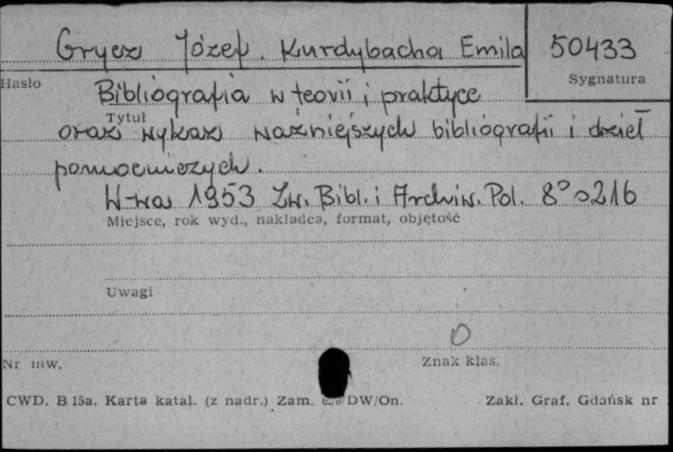 Grycz Józef. Kurdybacha Emila 50433
Hasło Sygnatura
Bibliografia w teorii i praktyce
Tytuł
oraz wykaz ważniejszych bibliografii i dzieł
pomocniczych.
W-wa 1953 Zw. Bibl. i Archiw. Pol. 8° s 216
Miejsce, rok wyd., nakładca, format, objętość
Uwagi
0
Nr inw. Znak klas.
CWD. B 15a. Karta katal. (z nadr.) Zam. DW/On. Zakł. Graf. Gdańsk nr